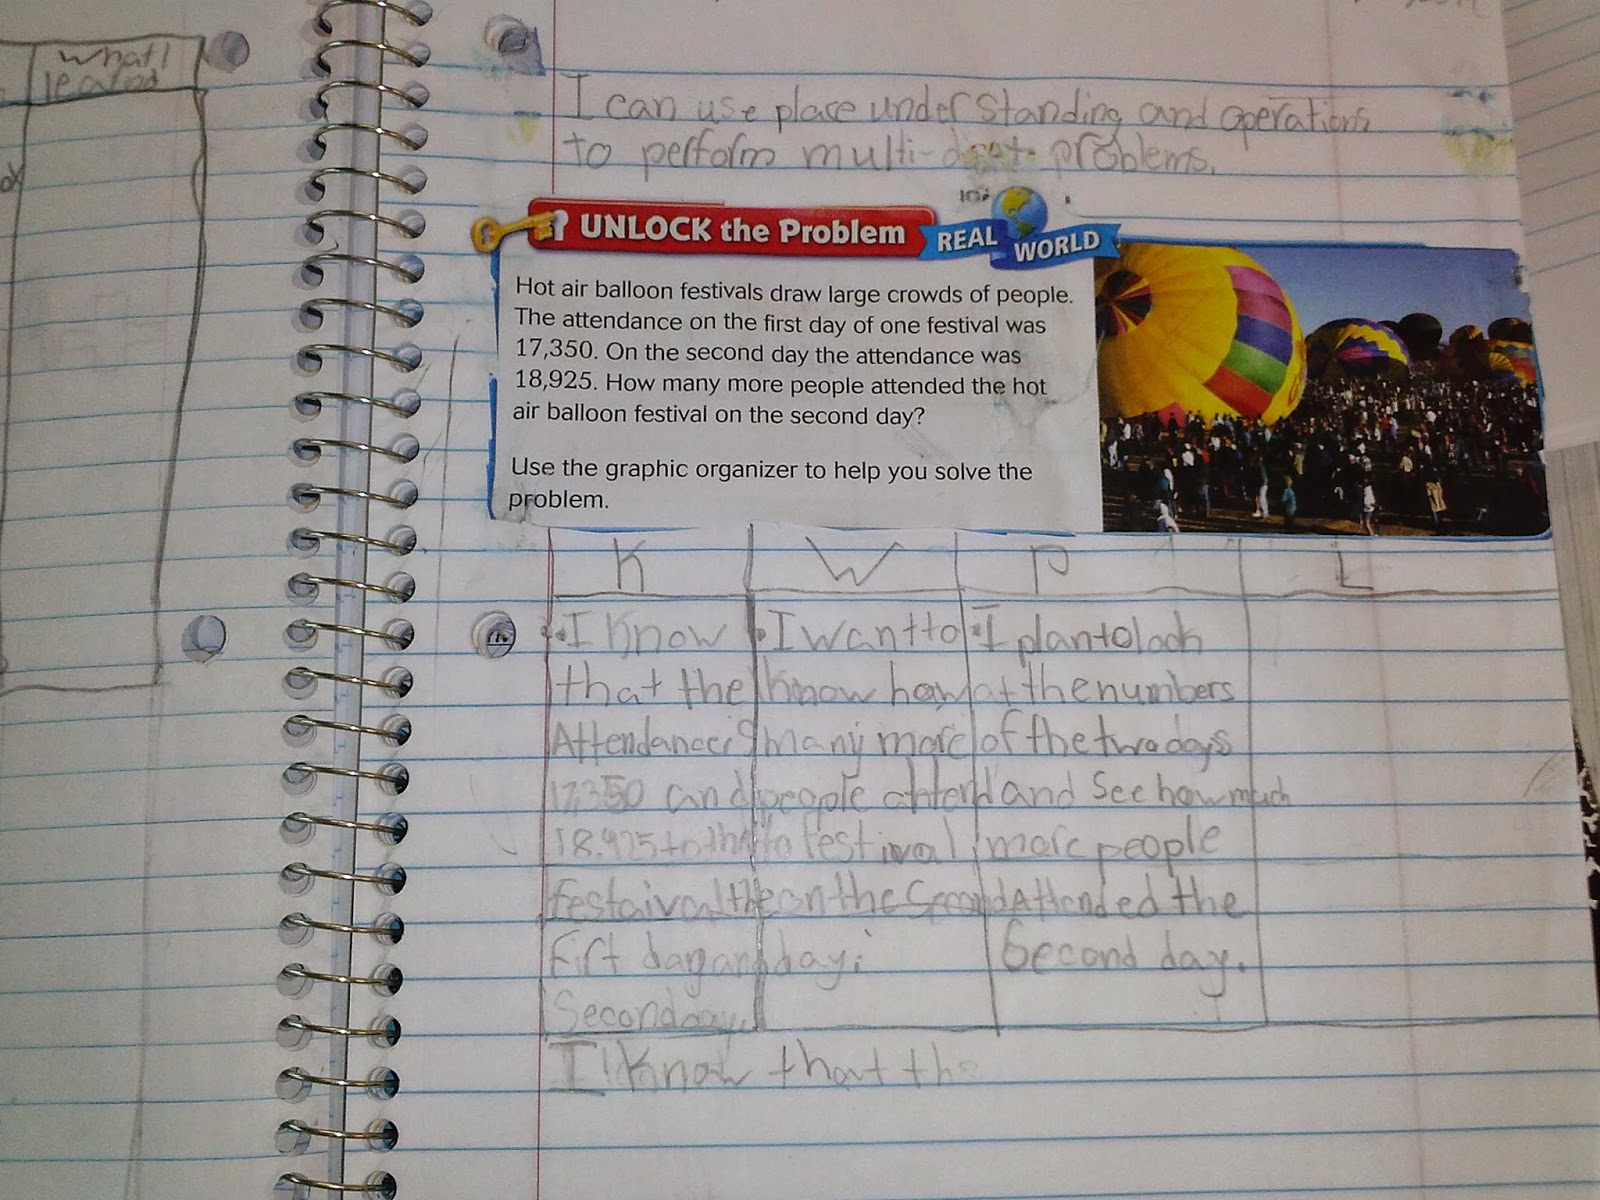 what I
learned
I can use place under standing and operations
to perform multi- problems.
UNLOCK the Problem
REAL WORLD
Hot air balloon festivals draw large crowds of people.
The attendance on the first day of one festival was
17,350. On the second day the attendance was
18,925. How many more people attended the hot
air balloon festival on the second day?
Use the graphic organizer to help you solve the
problem.
K
I Know
that the
Attendance is
17,350 and
18.925 to the
festaival the
fift day and
Second day.
W
I want to
know how
many more
people attend
to festival
on the Second
day.
P
I plan to look
at the numbers
of the two days
and See how much
more people
Attended the
Second day.
L
I Know that the